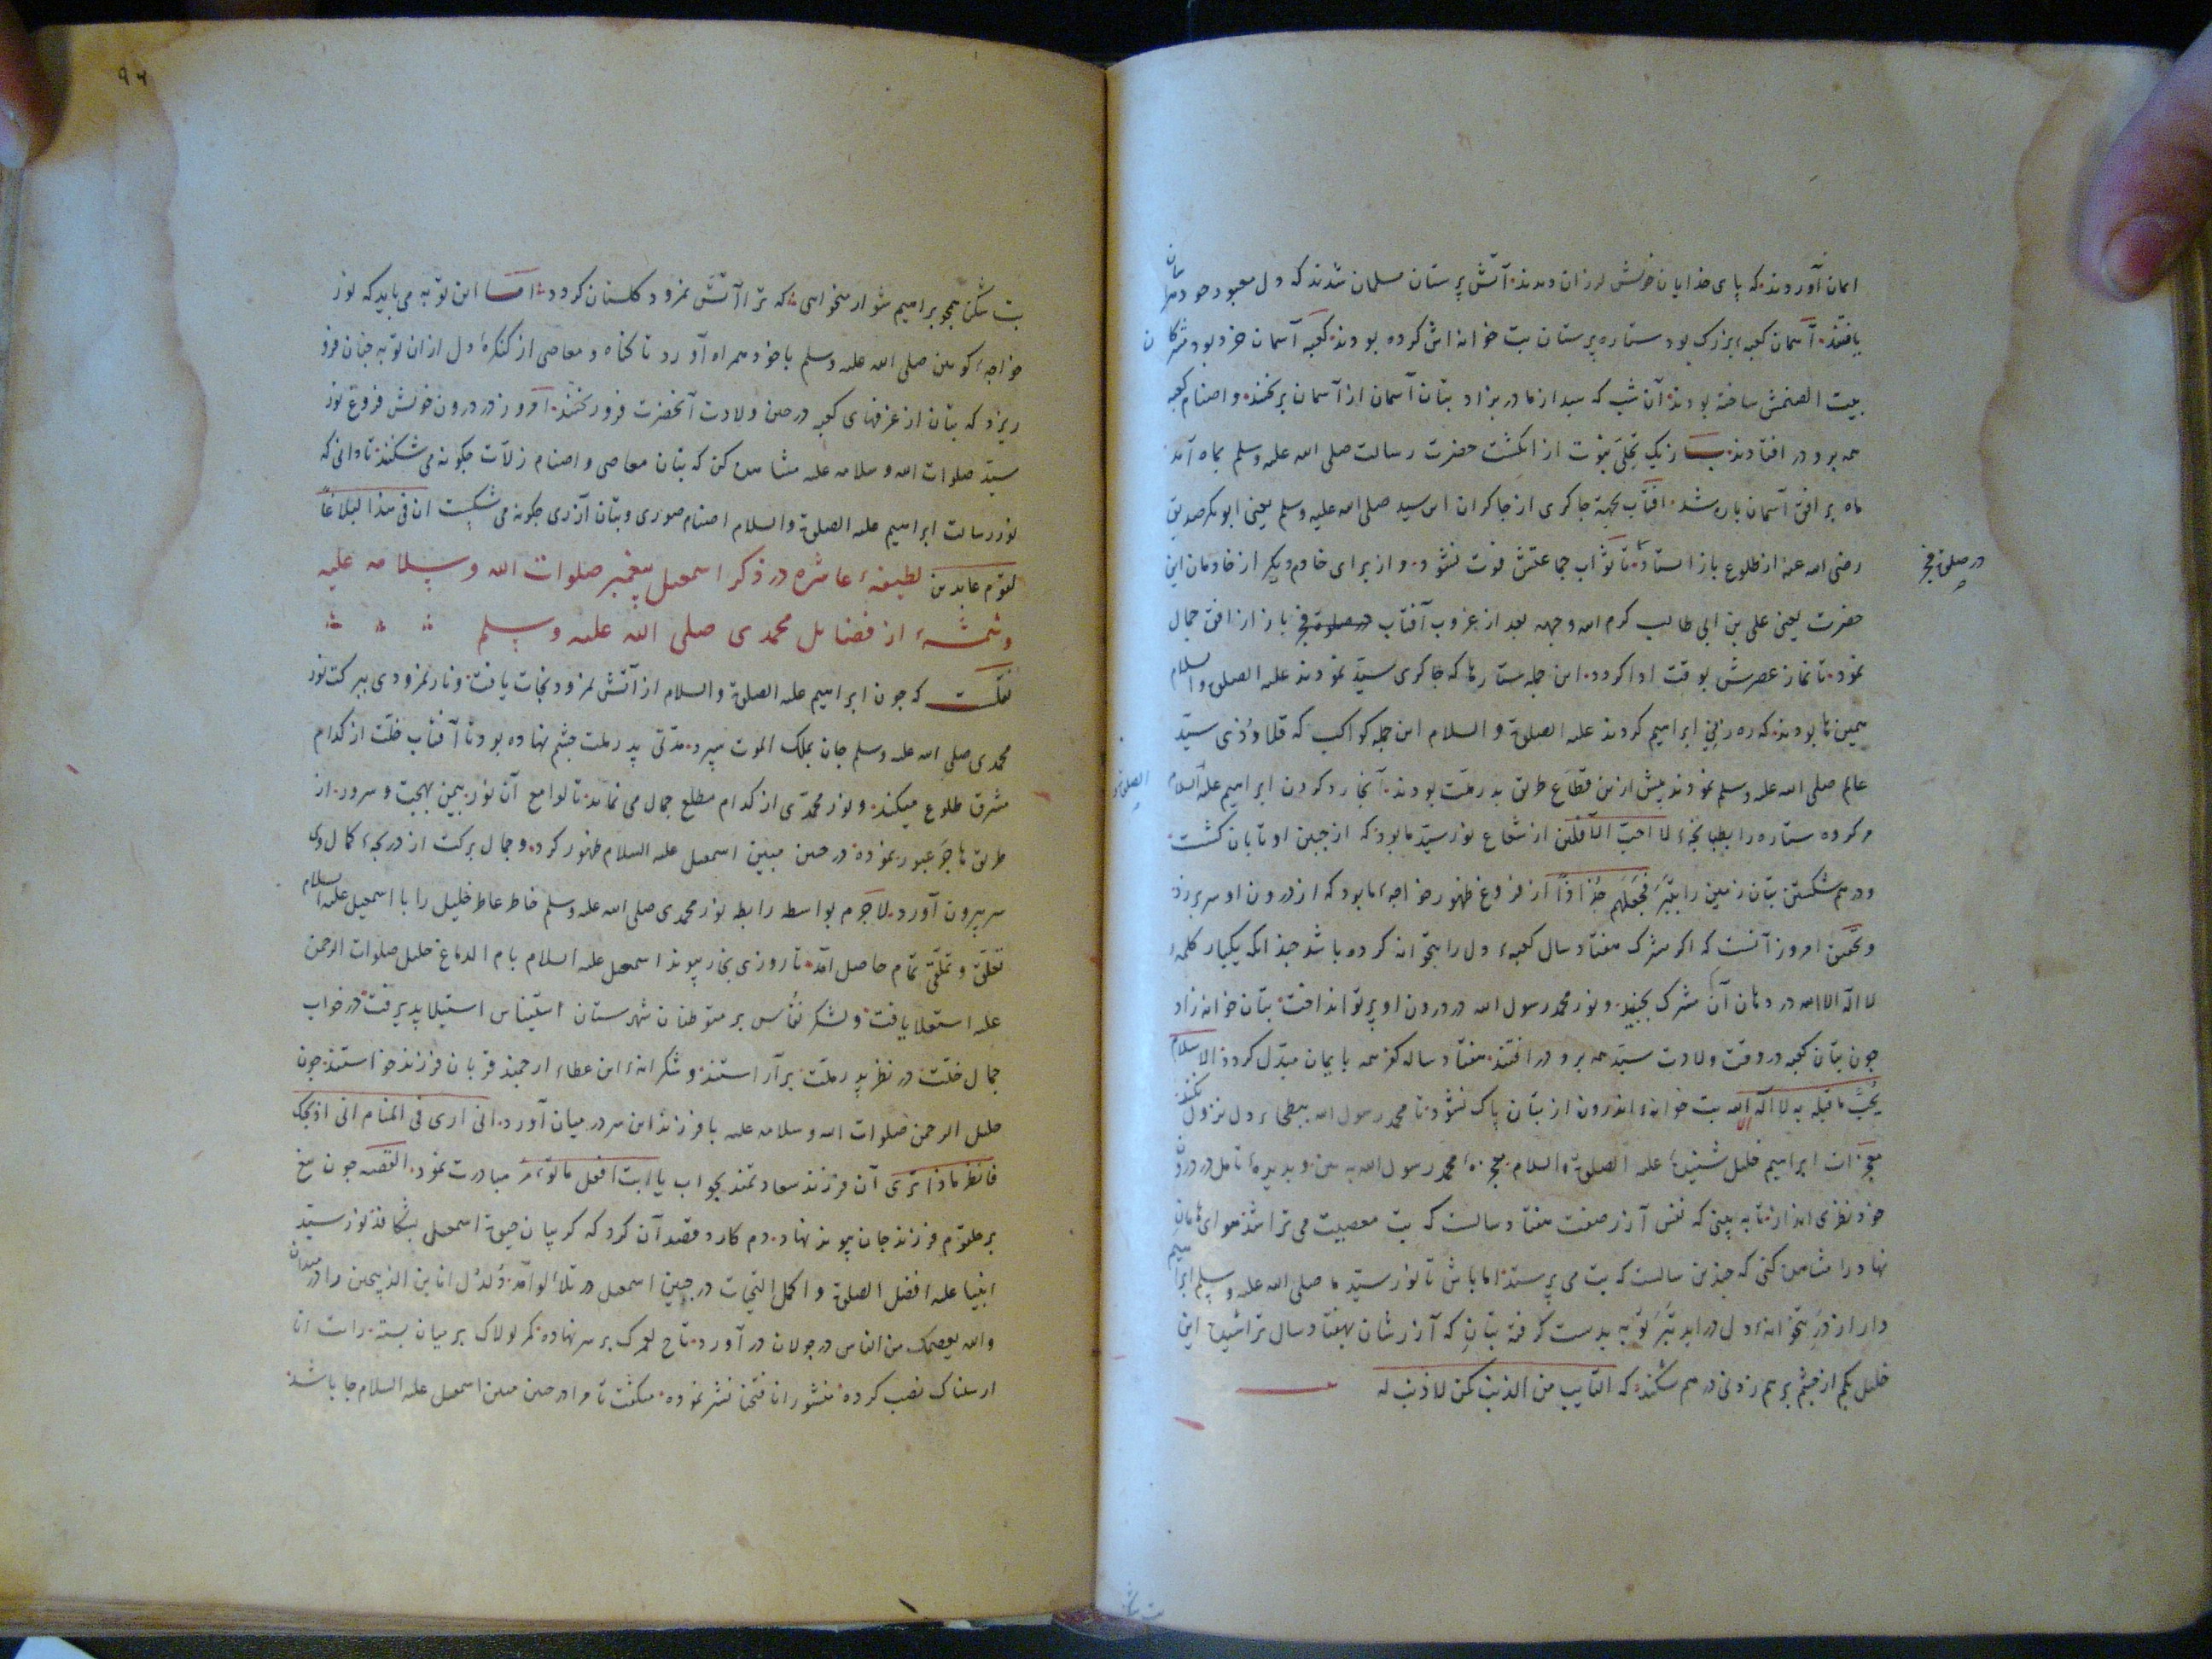 ایمان آوردند که پای خدایان خویش لرزان دیدند آتش پرستان مسلمان شدند که دل معبود خود
یافتند آسمان کعبهٔ بزرک بود ستاره پرستان بت خانه اش کرده بودند کعبه آسمان خرد بود مشرکان
بیت الصنمش ساخته بودند آن شب که سید از مادر بزاد بتان آسمان از آسمان بریختند و اصنام کعبه
همه برو در افتادند باز یک تجلی نبوت از انکشت حضرت رسالت صلی الله علیه وسلم بماه آمد
ماه بر افق آسمان پاره شد افتاب بجهة چاکری از چاکران این سید صلی الله علیه وسلم یعنی ابو بکر صدیق
رضی الله عنه از طلوع باز استاد تا ثواب جماعتش فوت نشود و از برای خادم دیکر از خادمان این
در صلوة فجر
حضرت یعنی علی بن ابی طالب کرم الله وجهه بعد از غروب آفتاب در صلوة فجر باز از افق جمال
نمود تا نماز عصرش بوقت ادا کرد این جمله ستارها که چاکری سید نمودند علیه الصلوة والسلام
همین ها بودند که ره زنی ابراهیم کردند علیه الصلوة و السلام این جمله کواکب که قلاوزی سید
عالم صلی الله علیه وسلم نمودند پیش ازین قطاع طریق پدر ملت بودند آنجا رد کردن ابراهیم علیه السلام
مر کرده ستاره را بطپانچهٔ لا احب الآفلین از شعاع نور سید ما بود که از جبین او تابان کشت
ودر هم شکستن بتان زمین را بتبر فجعلهم جذاذا از فروغ ظهور خواجهٔ ما بود که از درون او سر بر زد
و همین امروز آنست که اکر مشرک هفتاد سال کعبهٔ دل را بتخانه کرده باشد چندانکه یکبار کلمهٔ
لا اله الا الله در دهان آن مشرک بجنبید و نور محمد رسول الله در درون او پرتو انداخت بتان خانه زاد
چون بتان کعبه در وقت ولادت سید همه برو در افتند هفتاد ساله کفر همه بایمان مبدل کردد الاسلام
یجب ما قبله به لا اله الا الله بت خانهٔ اندرون از بتان پاک نشود تا محمد رسول الله ببطحاء دل نزول نکند
معجزات ابراهیم خلیل شنیدهٔ علیه الصلوة والسلام معجزهٔ محمد رسول الله ببین و بدیدهٔ تامل در درون
خود نظری انداز تا به بینی که نفس آزر صفت هفتاد سالست که بت معصیت می تراشد هوای هامان
نهاد را مشاهده کنی که چندین سالست که بت می پرستد اما باش تا نور سید ما صلی الله علیه وسلم ابراهیم
دار از در بتخانهٔ دل در اید تبر توبه بدست کرفته بتان که آزر شان بهفتاد سال تراشیده این
خلیل بکم از چشم برهم زدنی در هم شکند که التایب من الذنب کمن لا ذنب له
۹۴
بت شکن همچو ابراهیم شو ار میخواهی که ترا آتش نمرود کلستان کردد اما این توبه می باید که نور
خواجهٔ کونین صلی الله علیه وسلم با خود همراه آورد تا کناه و معاصی از کنکرهٔ دل از ان توبه چنان فرو
ریزد که بتان از غرفهای کعبه در حین ولادت آنحضرت فرو ریختند امروز در درون خویش فروغ نور
سید صلوات الله و سلامه علیه مشاهده کن که بتان معاصی و اصنام زلات چکونه می شکنند تا دانی که
نور رسالت ابراهیم علیه الصلوة والسلام اصنام صوری و بتان آزری چکونه می شکست ان فی هذا لبلاغا
لقوم عابدین لطیفهٔ عاشره در ذکر اسمعیل پیغمبر صلوات الله وسلامه علیه
وشمهٔ از فضایل محمدی صلی الله علیه وسلم
نقلست که چون ابراهیم علیه الصلوة والسلام از آتش نمرود نجات یافت و نار نمرودی ببرکت نور
محمدی صلی الله علیه وسلم جان بملک الموت سپرد مدتی پدر ملت چشم نهاده بود تا آفتاب خلت از کدام
مشرق طلوع میکند و نور محمدی از کدام مطلع جمال می نماید تا لوامع آن نور بیمن بهجت و سرور از
طریق هاجر عبور نموده در جبین مبین اسمعیل علیه السلام ظهور کرد و جمال برکت از دریچهٔ کمال وی
سر بیرون آورد لاجرم بواسطه رابطه نور محمدی صلی الله علیه وسلم خاطر عاطر خلیل را با اسمعیل علیه السلام
تعلق و تملق تمام حاصل آمد تا روزی بخار پیوند اسمعیل علیه السلام بام الدماغ خلیل صلوات الرحمن
علیه استعلا یافت و لشکر نعاس بر متوطنان شهرستان استیناس استیلا پذیرفت در خواب
جمال خلت در نظر پدر ملت بر آراستند و شکرانهٔ این عطاء ارجمند قربان فرزند خواستند چون
خلیل الرحمن صلوات الله وسلامه علیه با فرزند این سر در میان آورد انی اری فی المنام انی اذبحک
فانظر ماذا تری آن فرزند سعادتمند بجواب یا ابت افعل ما تؤمر مبادرت نمود القصه چون تیغ
بر حلقوم فرزند جان پیوند نهاد دم کارد قصد آن کرد که کریبان حیوة اسمعیل بشکافد نور سید
انبیا علیه افضل الصلوة و اکمل التحیات در جبین اسمعیل در تلألؤ آمد دلدل انا ابن الذبیحین را در میدان
والله یعصمک من الناس در جولان در آورد تاج لعمرک بر سر نهاده کمر لولاک بر میان بسته رایت انا
ارسلناک نصب کرده منشور انا فتحنا نشر نموده میکفت تا مرا در جبین مبین اسمعیل علیه السلام جا باشد